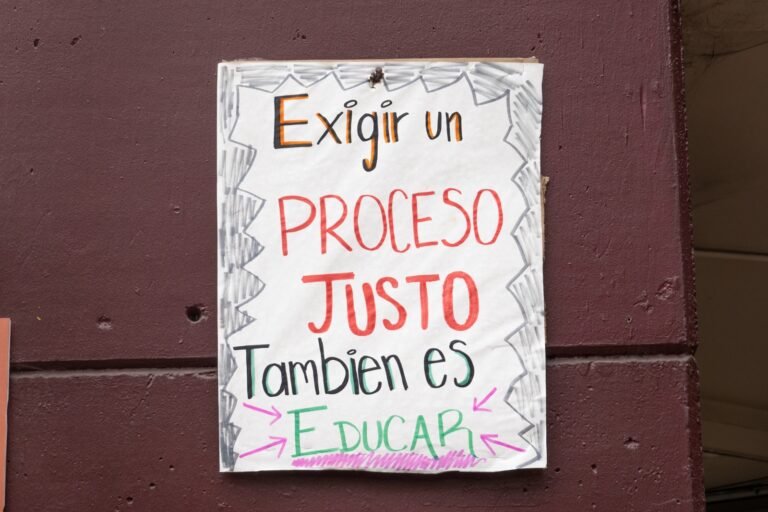 Exigir un
PROCESO
JUSTO
Tambien es
EDUCAR